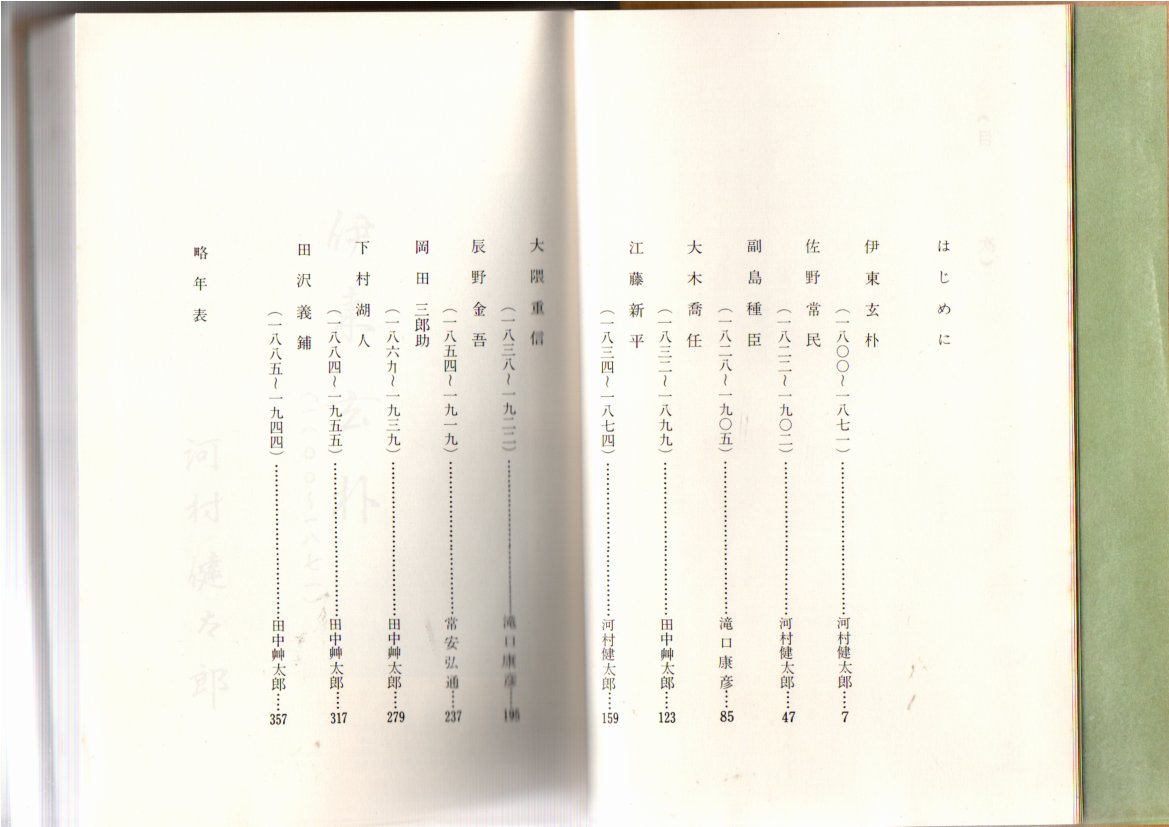 はじめに
伊東玄朴
(一八〇〇～一八七一)……河村健太郎……7
佐野常民
(一八二二～一九〇二)……河村健太郎……47
副島種臣
(一八二八～一九〇五)……滝口康彦……85
大木喬任
(一八三二～一八九九)……田中艸太郎……123
江藤新平
(一八三四～一八七四)……河村健太郎……159
大隈重信
(一八三八～一九二二)……滝口康彦……195
辰野金吾
(一八五四～一九一九)……常安弘通……237
岡田三郎助
(一八六九～一九三九)……田中艸太郎……279
下村湖人
(一八八四～一九五五)……田中艸太郎……317
田沢義鋪
(一八八五～一九四四)……田中艸太郎……357
略年表
伊東玄朴
(一八〇〇～一八七一)
河村健太郎